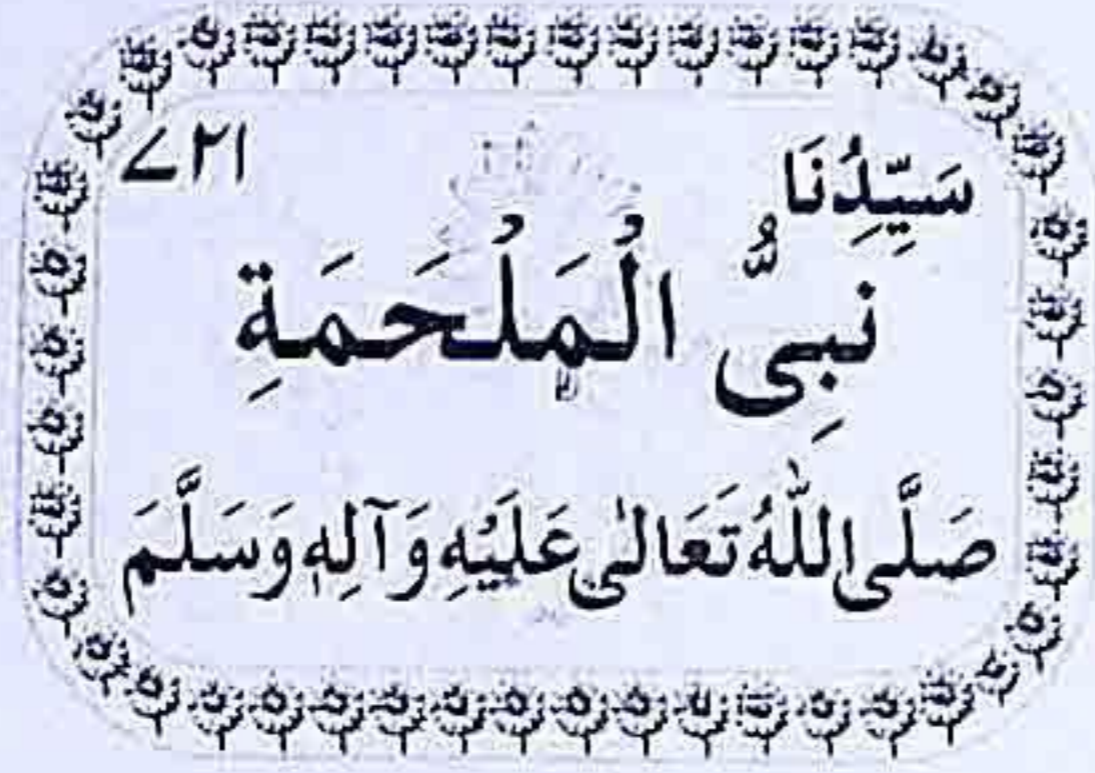 سَيِّدِنَا ۷۲۱
نَبِىُّ الْمَلْحَمَةِ
صَلَّى اللّٰهُ تَعَالٰى عَلَيْهِ وَآلِهٖ وَسَلَّمَ